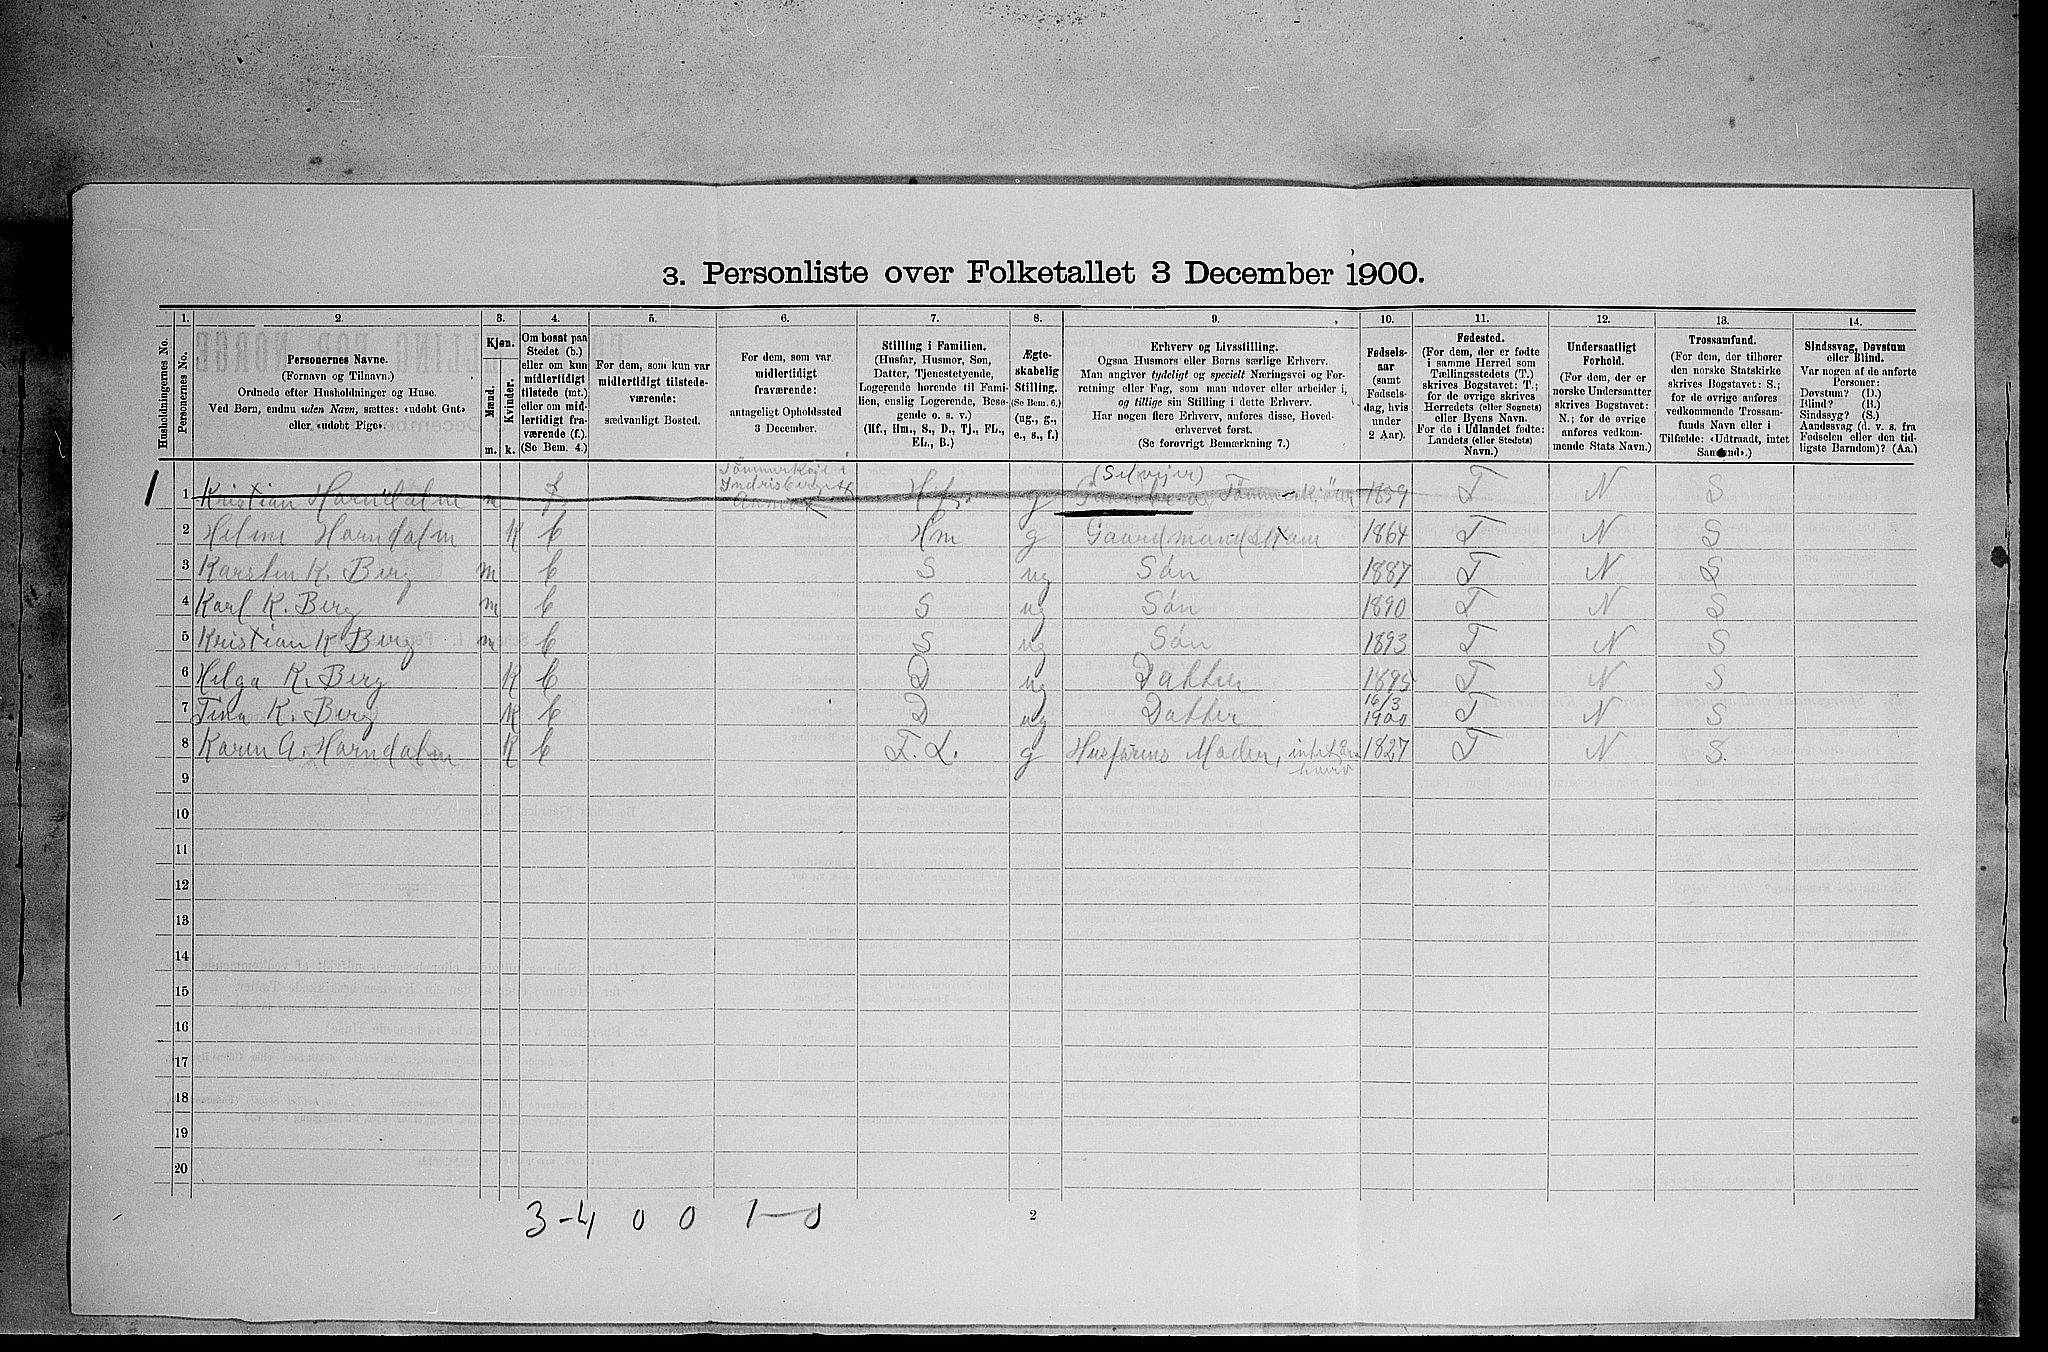 3. Personliste over Folketallet 3 December 1900.
1. 2. 3. 4. 5. 6. 7. 8. 9. 10. 11. 12. 13. 14.
Husholdningernes No.
Personernes No.
Personernes Navne.
(Fornavn og Tilnavn.)
Ordnede efter Husholdninger og Huse.
Ved Børn, endnu uden Navn, sættes: «udøbt Gut»
eller, «udøbt Pige».
Kjøn.
Mænd.
Kvinder.
m. k.
Om bosat paa
Stedet (b.)
eller om kun
midlertidigt
tilstede (mt.)
eller om mid-
lertidigt fra-
værende (f.)
(Se Bem. 4.)
For dem, som kun var
midlertidigt tilstede-
værende:
sædvanligt Bosted.
For dem, som var
midlertidigt
fraværende:
antageligt Opholdssted
3 December.
Stilling i Familien.
(Husfar, Husmor, Søn,
Datter, Tjenestetyende,
Logerende hørende til Fami-
lien, enslig Logerende, Besø-
gende o. s. v.)
(Hf., Hm., S., D., Tj., FL.,
EL., B.)
Ægte-
skabelig
Stilling.
(Se Bem. 6.)
(ug., g.,
e., s., f.)
Erhverv og Livsstilling.
Ogsaa Husmors eller Børns særlige Erhverv.
Man angiver tydeligt og specielt Næringsvei og For-
retning eller Fag, som man udøver eller arbeider i,
og tillige sin Stilling i dette Erhverv.
Har nogen flere Erhverv, anføres disse, Hoved-
erhvervet først.
(Se forøvrigt Bemærkning 7.)
Fødsels-
aar
(samt
Fødsels-
dag, hvis
under
2 Aar).
Fødested.
(For dem, der er fødte
i samme Herred som
Tællingsstedets (T.)
skrives Bogstavet: T.;
for de øvrige skrives
Herredets (eller Sognets)
eller Byens Navn.
For de i Udlandet fødte:
Landets (eller Stedets)
Navn.)
Undersaatligt
Forhold.
(For dem, der er
norske Undersaatter
skrives Bogstavet:
N.; for de øvrige
anføres vedkom-
mende Stats Navn.)
Trossamfund.
(For dem, der tilhører
den norske Statskirke
skrives Bogstavet: S.;
for de øvrige anføres
vedkommende Trossam-
funds Navn eller i
Tilfælde: «Udtraadt, intet
Samfund».)
Sindssvag, Døvstum
eller Blind.
Var nogen af de anførte
Personer:
Døvstum? (D.)
Blind? (B.)
Sindssyg? (S.)
Aandssvag (d. v. s. fra
Fødselen eller den tid-
ligste Barndom)? (Aa.)
1 1 Kristian Horndalm m f Tømmerkøjl i Hf. g (Selvejer) 1859 T N S
2 Helene Horndalm K b Hm g Gaardmandskone 1864 T N S
3 Karsten K. Berg m b S ug Søn 1887 T N S
4 Karl K. Berg m b S ug Søn 1890 T N S
5 Kristian K Berg m b S ug Søn 1893 T N S
6 Helga K. Berg K b D ug Datter 1895 T N S
7 Tina K. Berg K b D ug Datter 16/3 1900 T N S
8 Karen A. Horndalm K b F. L. g Husfarens Moder, intet Erhverv 1827 T N S.
9
10
11
12
13
14
15
16
17
18
19
20
3-4 0 0 1-0
2